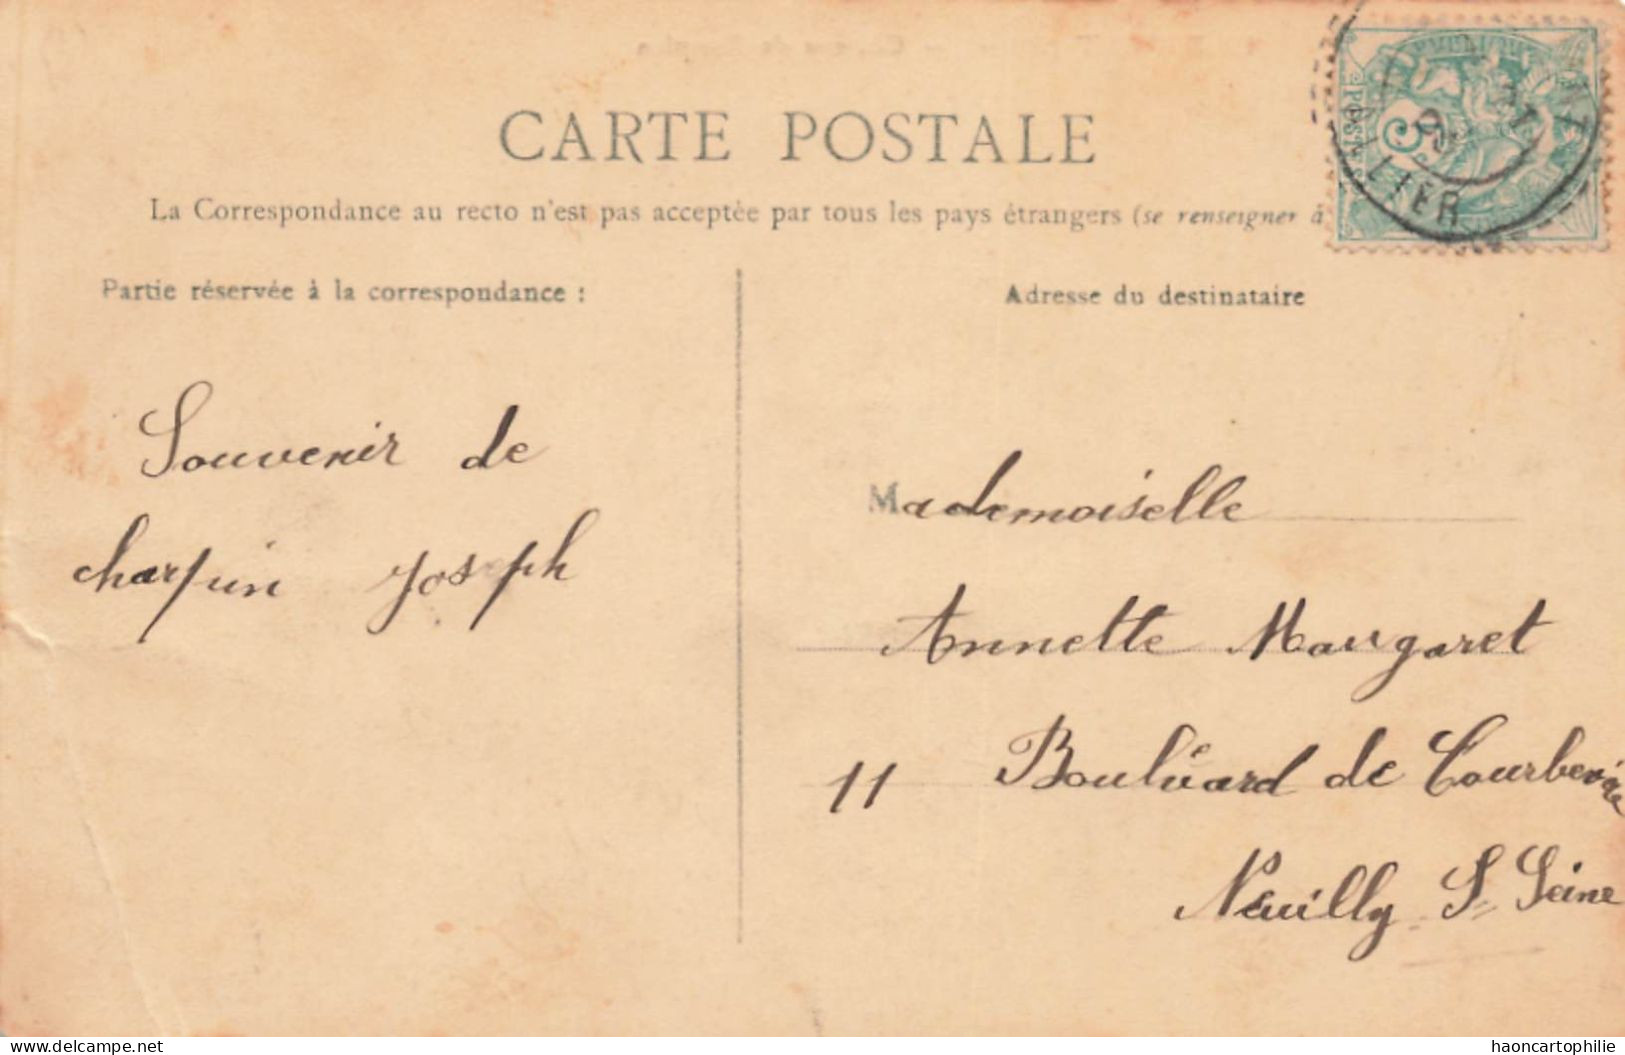 CARTE POSTALE
La Correspondance au recto n'est pas acceptée par tous les pays étrangers (se renseigner à
Partie réservée à la correspondance :
Adresse du destinataire
Souvenir de
charpin Joseph
Mademoiselle
Annette Margaret
11 Boulevard de Courbevoie
Neuilly S= Seine
ALLIER
5
POSTES
www.delcampe.net
haoncartophilie